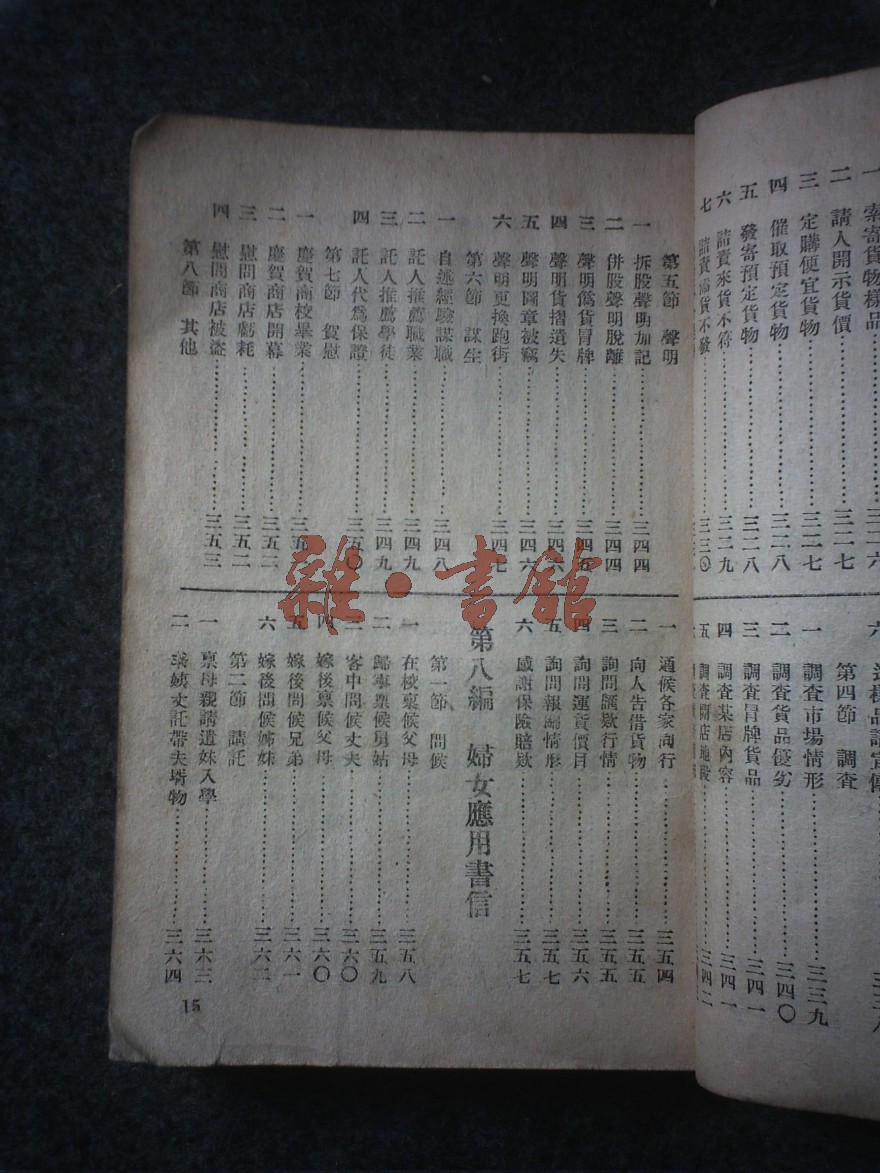 一 索寄貨物樣品…三二六
二 請人開示貨價…三二七
三 定購便宜貨物…三二七
四 催取預定貨物…三二八
五 發寄預定貨物…三二八
六 詰責來貨不符…三二九
七 詰責需貨不發…三三〇
第四節 調查
一 調查市場情形…三三九
二 調查貨品優劣…三四〇
三 調查冒牌貨品…三四一
四 調查某店內容…三四一
五 調查開店地段…三四二
第五節 聲明
一 拆股聲明加記…三四四
二 併股聲明脫離…三四四
三 聲明僞貨冒牌…三四五
四 聲明貨摺遺失…三四六
五 聲明圖章被竊…三四六
六 聲明更換跑街…三四七
第六節 謀生
一 自述經驗謀職…三四八
二 託人推薦職業…三四九
三 託人推薦學徒…三四九
四 託人代爲保證…三五〇
第七節 賀慰
一 慶賀商校畢業…三五
二 慶賀商店開幕…三五二
三 慰問商店虧耗…三五二
四 慰問商店被盜…三五三
第八節 其他
一 通候各家同行…三五四
二 向人告借貨物…三五五
三 詢問匯欵行情…三五五
四 詢問運貨價目…三五六
五 詢問報關情形…三五七
六 感謝保險賠欵…三五七
第八編 婦女應用書信
第一節 問候
一 在校稟候父母…三五八
二 歸寧稟候舅姑…三五九
三 客中問候丈夫…三六〇
四 嫁後稟候父母…三六〇
五 嫁後問候兄弟…三六一
六 嫁後問候姊妹…三六二
第二節 請託
一 稟母親請遣妹入學…三六三
二 姨丈託帶夫壻物…三六四
15
雜·書館